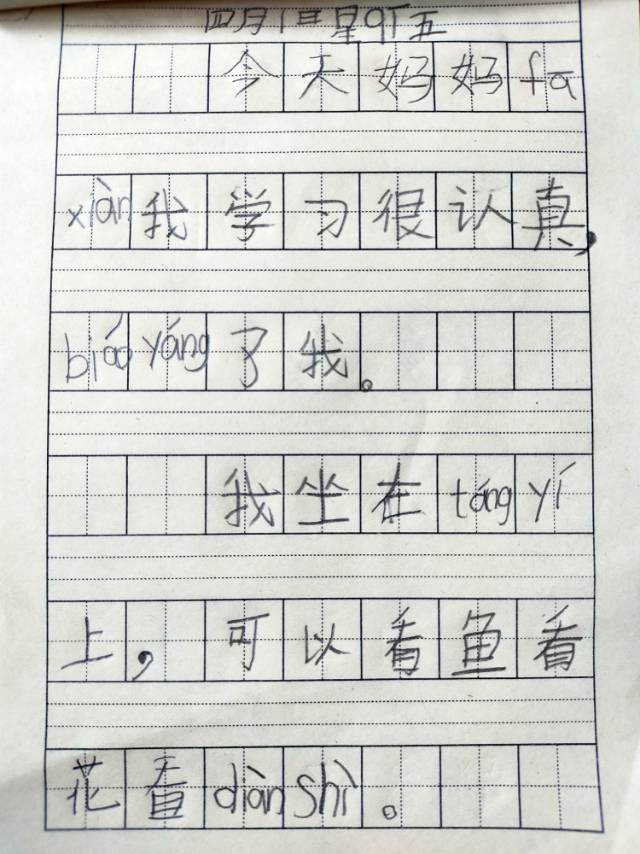 四月1日星qī五
今天妈妈fa
xiàn我学习很认真,
biáo yáng了我。
我坐在táng yí
上,可以看鱼看
花看diàn shì。